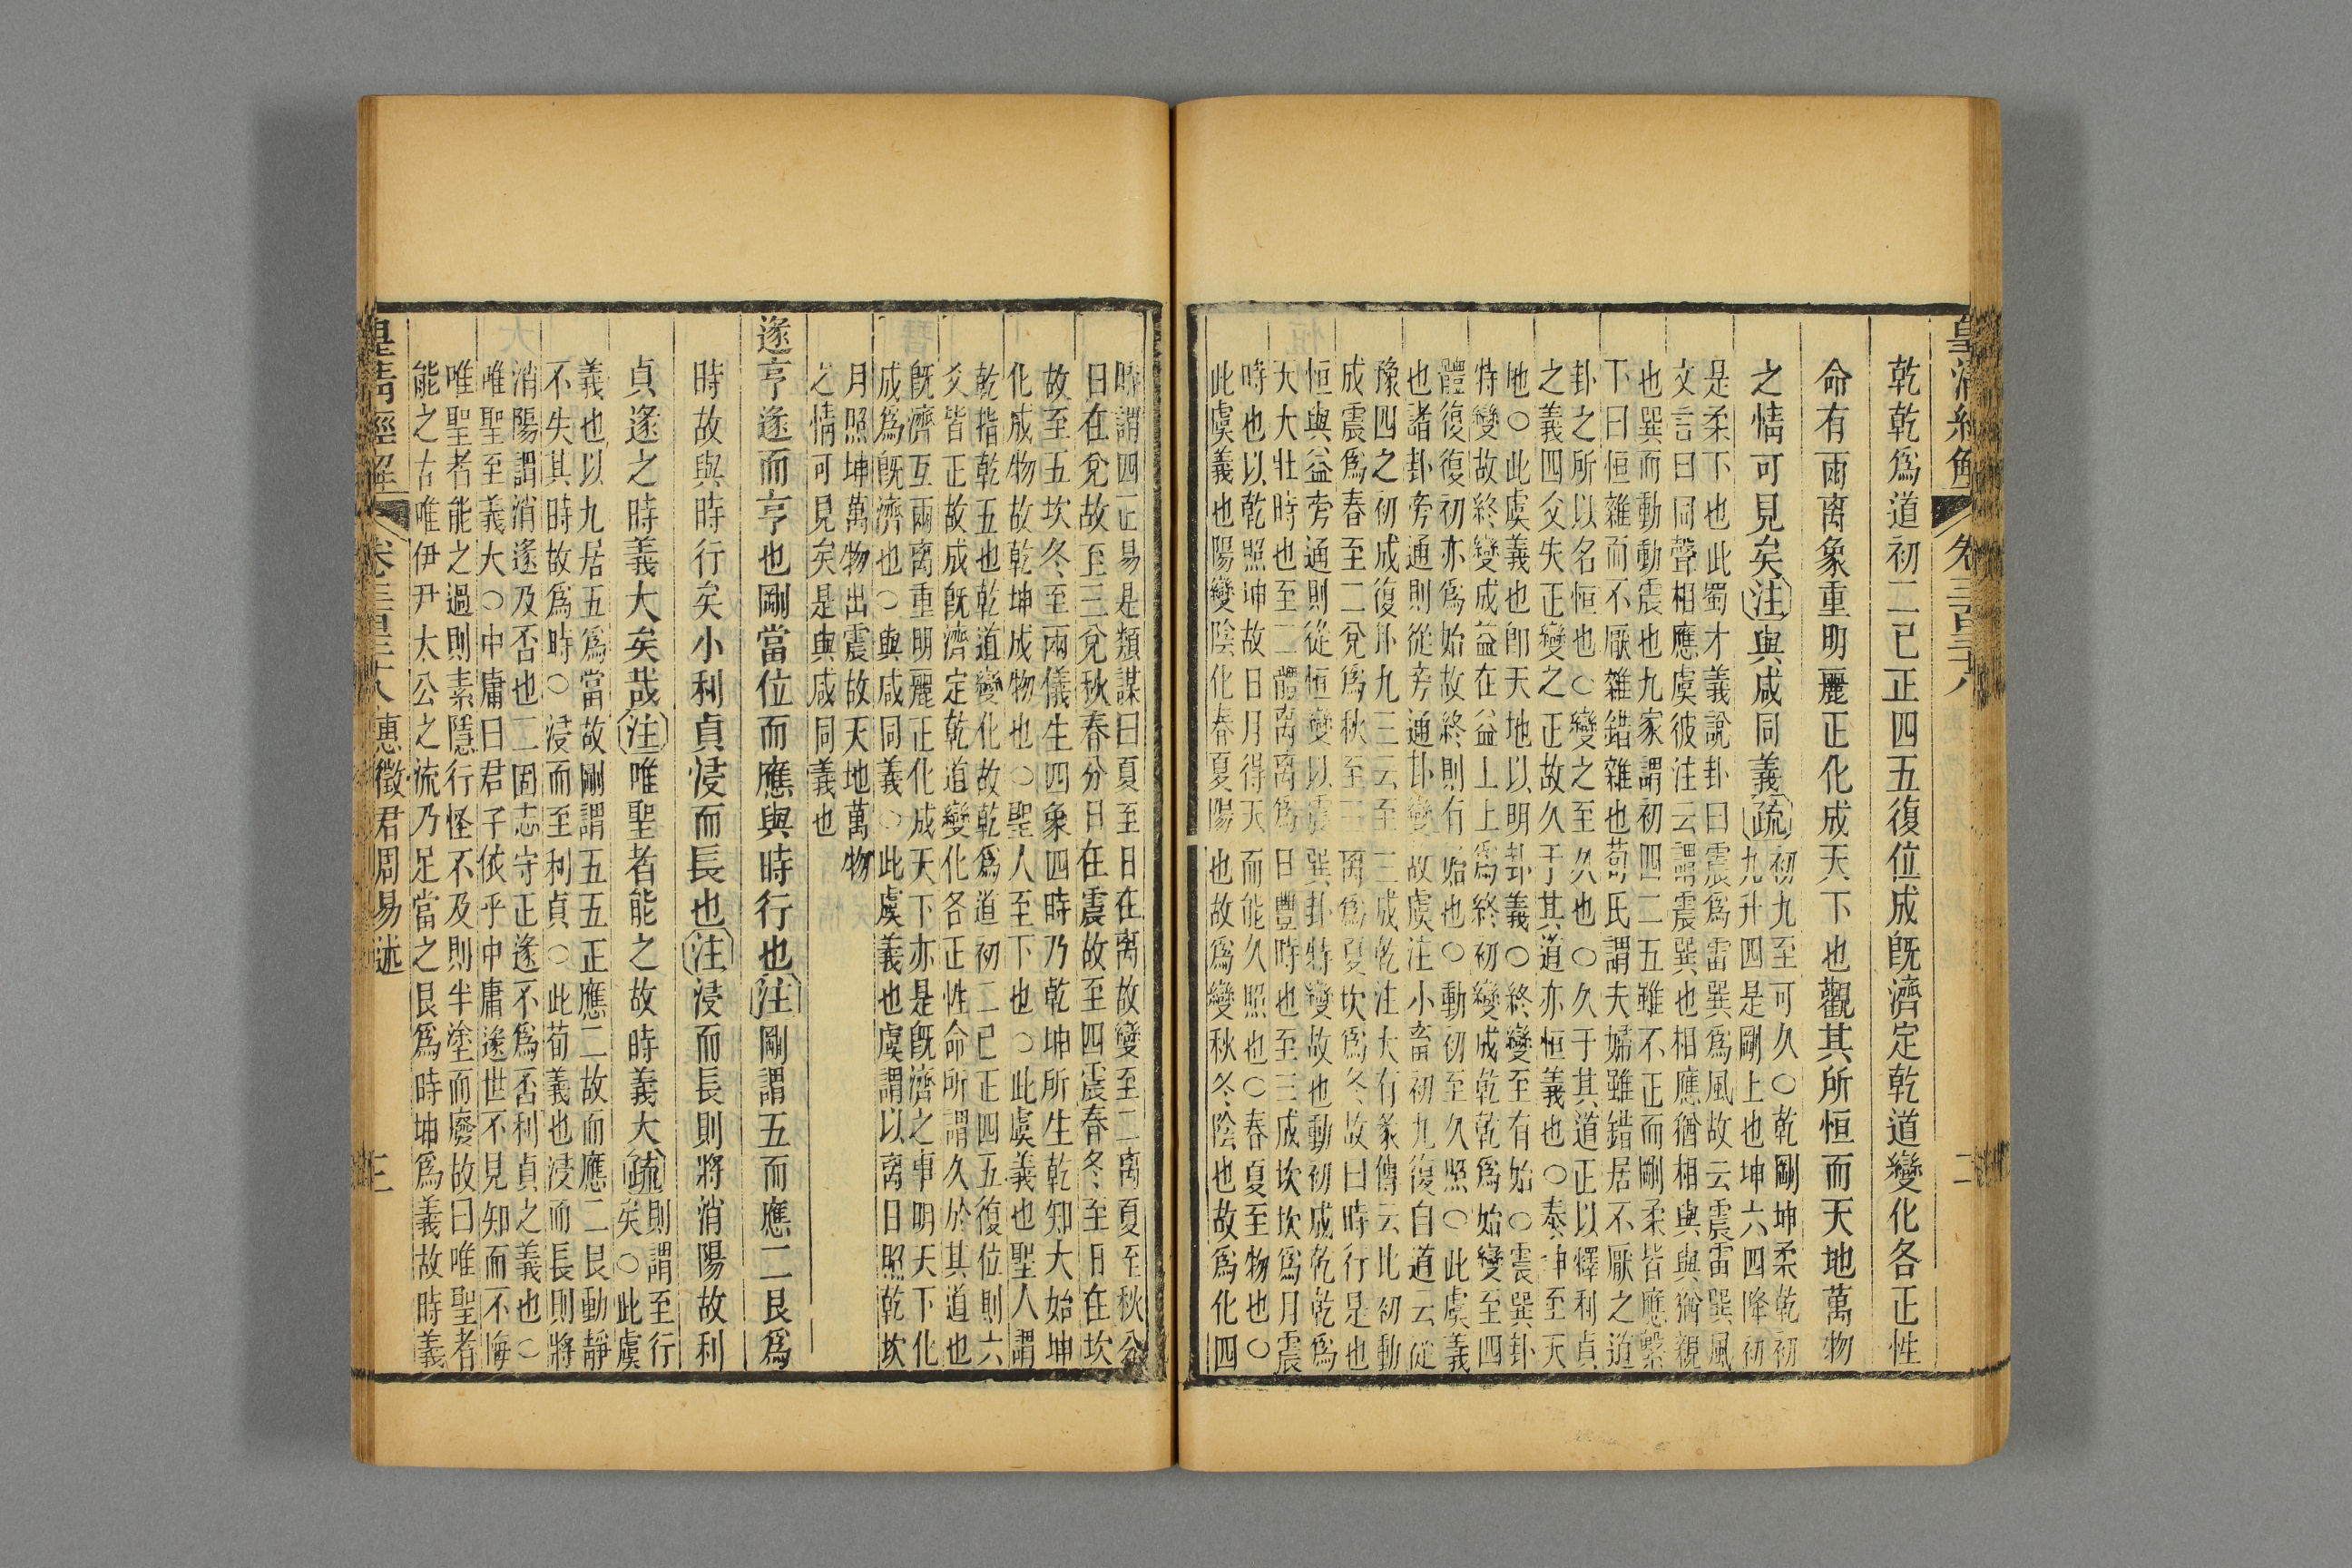 乾乾爲道初二已正四五復位成旣濟定乾道變化各正性
命有兩离象重明麗正化成天下也觀其所恒而天地萬物
之情可見矣注與咸同義疏初九至可久○乾剛坤柔乾初
九升四是剛上也坤六四降初
是柔下也此蜀才義說卦曰震爲雷巽爲風故云震雷巽風
文言曰同聲相應虞彼注云謂震巽也相應猶相與與猶親
也巽而動動震也九家謂初四二五雖不正而剛柔皆應繫
下曰恒雜而不厭雜錯雜也荀氏謂夫婦雖錯居不厭之道
卦之所以名恒也○變之至久也○久于其道正以釋利貞
之義四爻失正變之正故久于其道亦恒義也○泰坤至天
地○此虞義也卽天地以明卦義○終變至有始○震巽卦
特變故終變成益在益上上爲終初變成乾乾爲始變至四
體復復初亦爲始故終則有始也○動初至久照○此虞義
也諸卦旁通則從旁通卦變故虞注小畜初九復自道云從
豫四之初成復卦九三云至三成乾注大有彖傳云比初動
成震爲春至二兌爲秋至三离爲夏坎爲冬故曰時行是也
恒與益旁通則從恒變以震巽卦特變故也動初成乾乾爲
天大壯時也至二體离离爲日豐時也至三成坎坎爲月震
時也以乾照坤故日月得天而能久照也○春夏至物也○
此虞義也陽變陰化春夏陽也故爲變秋冬陰也故爲化四
時謂四正易是類謀曰夏至日在离故變至二离夏至秋分
日在兌故至三兌秋春分日在震故至四震春冬至日在坎
故至五坎冬至兩儀生四象四時乃乾坤所生乾知大始坤
化成物故乾坤成物也○聖人至下也○此虞義也聖人謂
乾指乾五也乾道變化故乾爲道初二已正四五復位則六
爻皆正故成旣濟定乾道變化各正性命所謂久於其道也
旣濟互兩离重明麗正化成天下亦是旣濟之事明天下化
成爲旣濟也○與咸同義○此虞義也虞謂以离日照乾坎
月照坤萬物出震故天地萬物
之情可見矣是與咸同義也
遂亨遂而亨也剛當位而應與時行也注剛謂五而應二艮爲
時故與時行矣小利貞浸而長也注浸而長則將消陽故利
貞遂之時義大矣哉注唯聖者能之故時義大疏則謂至行
矣○此虞
義也以九居五爲當故剛謂五五正應二故而應二艮動靜
不失其時故爲時○浸而至利貞○此荀義也浸而長則將
消陽謂消遂及否也二固志守正遂不爲否利貞之義也○
唯聖至義大○中庸曰君子依乎中庸遂世不見知而不悔
唯聖者能之過則素隱行怪不及則半塗而廢故曰唯聖者
能之古唯伊尹太公之流乃足當之艮爲時坤爲義故時義
惠徵君周易述
三